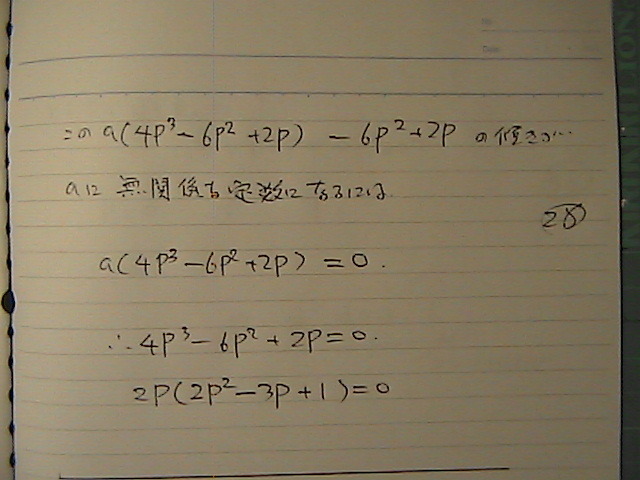 No.
Date
この a(4p³-6p²+2p) -6p²+2p の傾きが…
aに無関係な定数になるには
28
a(4p³-6p²+2p) = 0.
∴ 4p³-6p²+2p=0.
2p(2p²-3p+1)=0